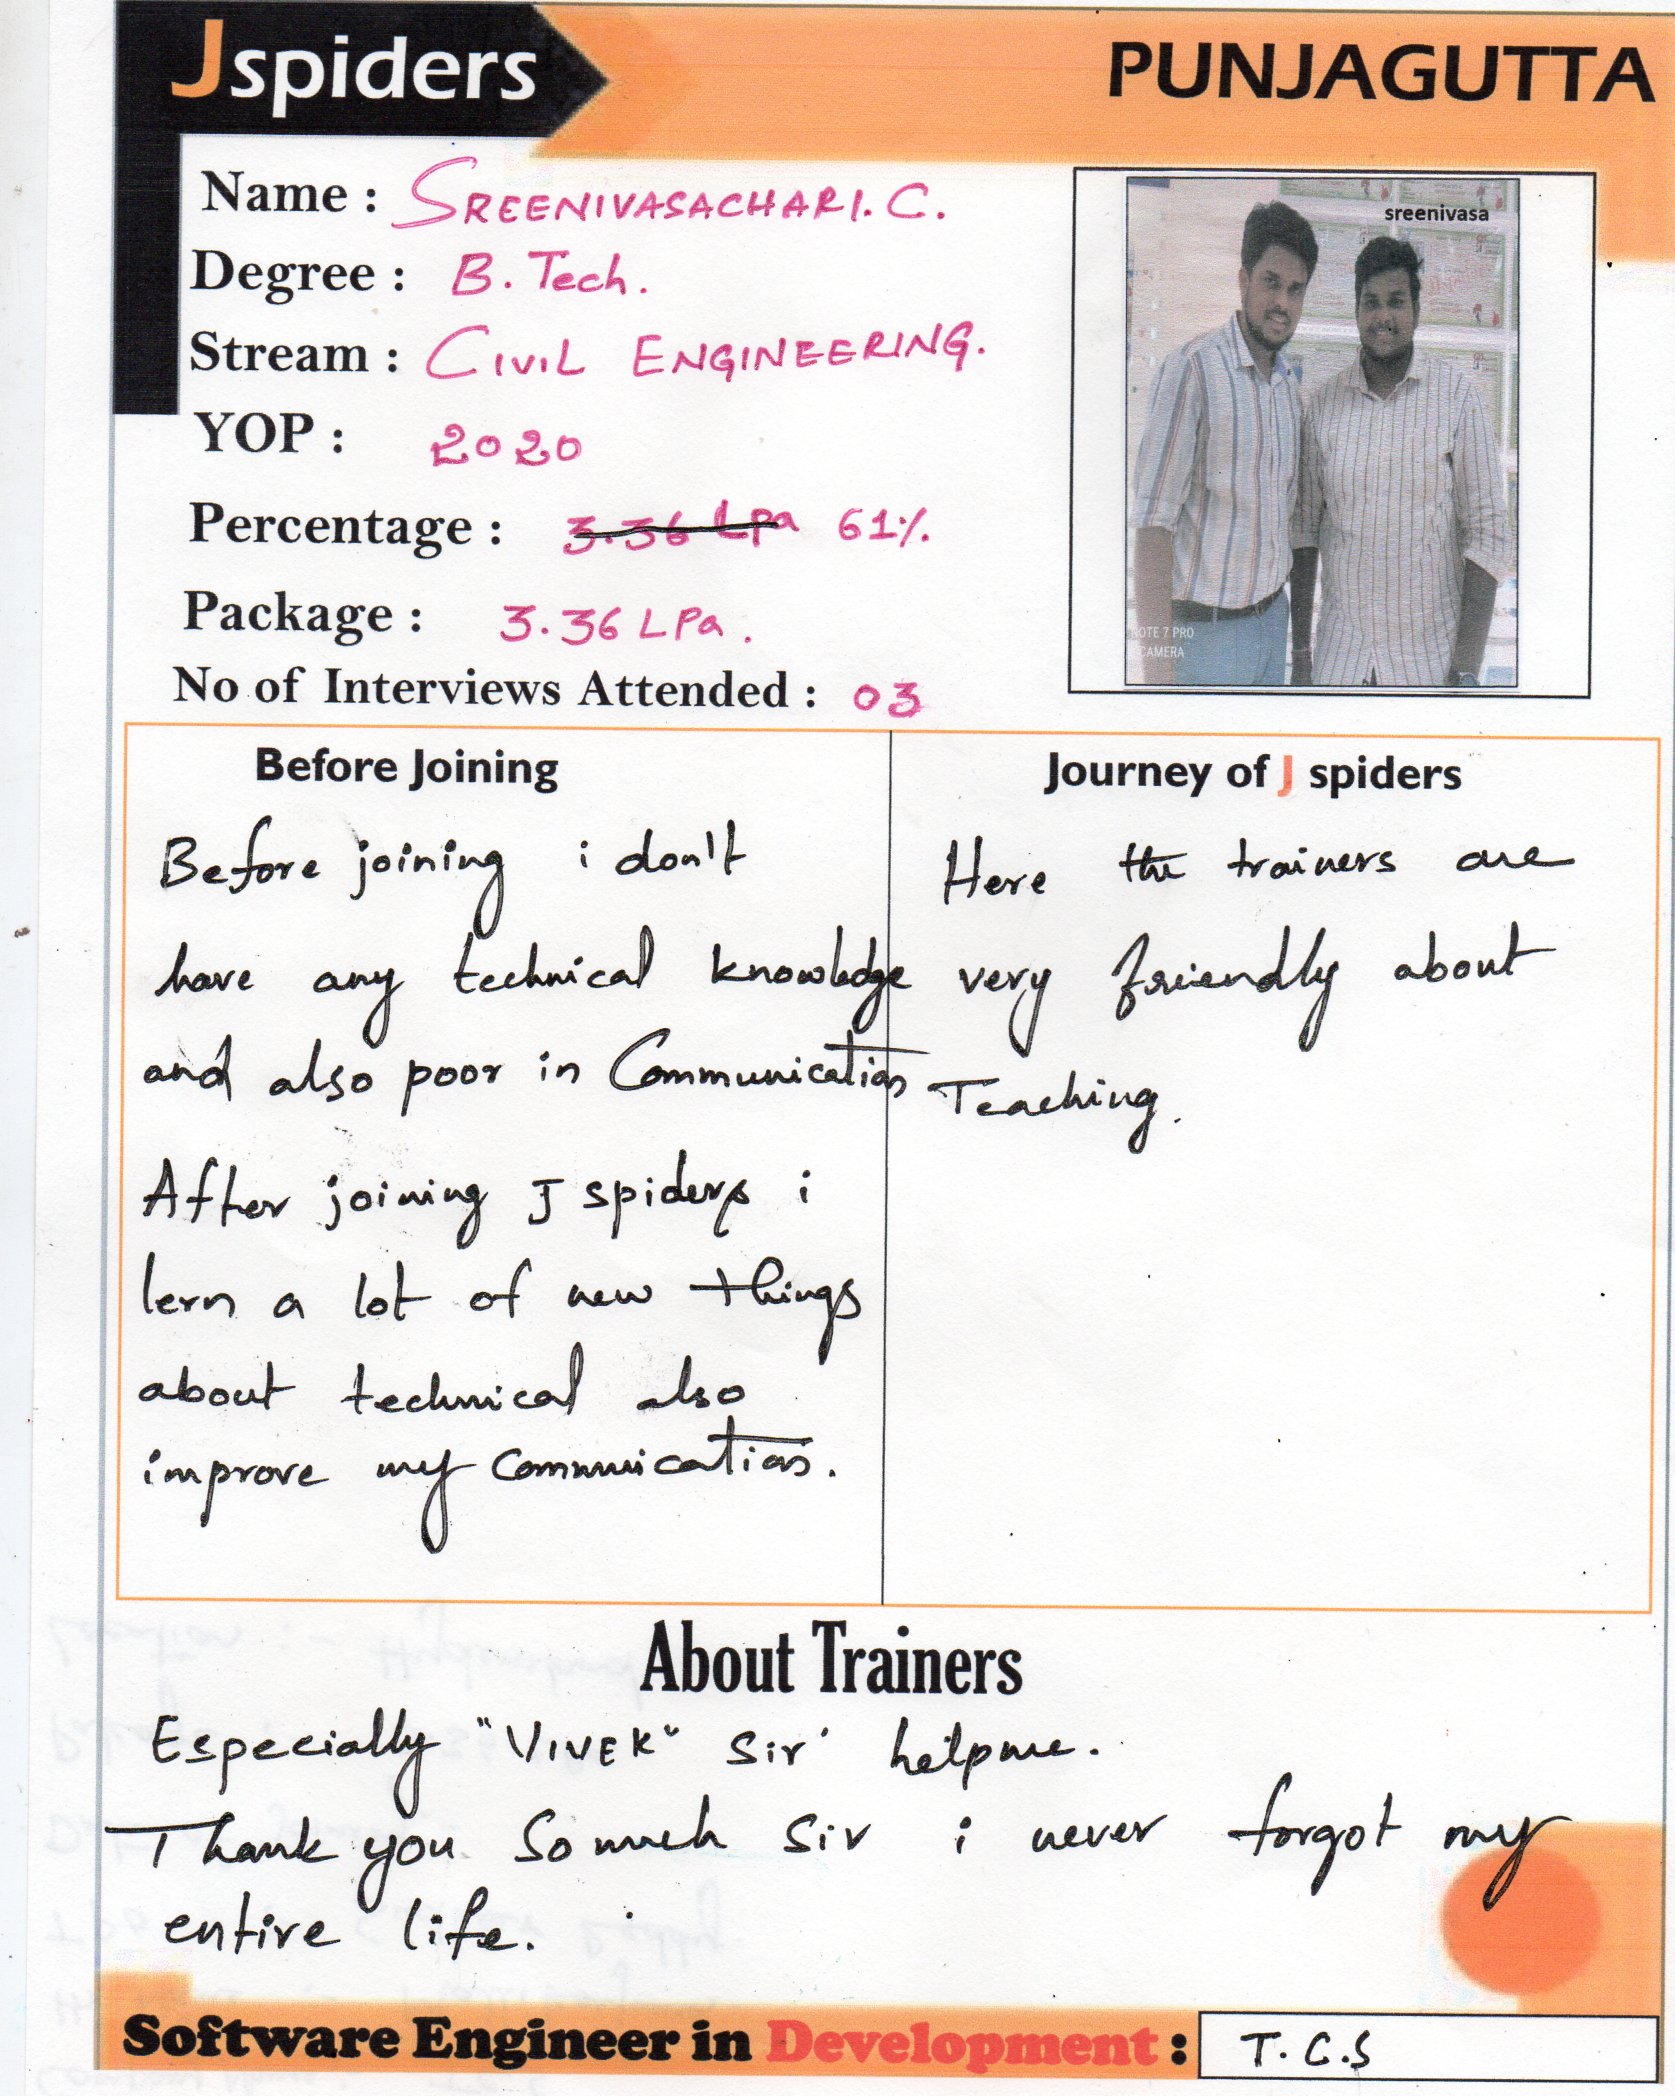 Jspiders
PUNJAGUTTA
Name : SREENIVASACHARI. C.
Degree : B. Tech.
Stream : CIVIL ENGINEERING.
YOP : 2020
Percentage : 3.36 Lpa 61%.
Package : 3.36 LPa .
No of Interviews Attended : 03
sreenivasa
NOTE 7 PRO
CAMERA
Before Joining
Before joining i don't
have any technical knowledge
and also poor in Communication
After joining J spiders i
lern a lot of new things
about technical also
improve my communication.
Journey of J spiders
Here the trainers are
very friendly about
Teaching.
About Trainers
Especially "VIVEK" sir helpme.
Thank you So much Sir i never forgot my
entire life.
Software Engineer in Development : T.C.S